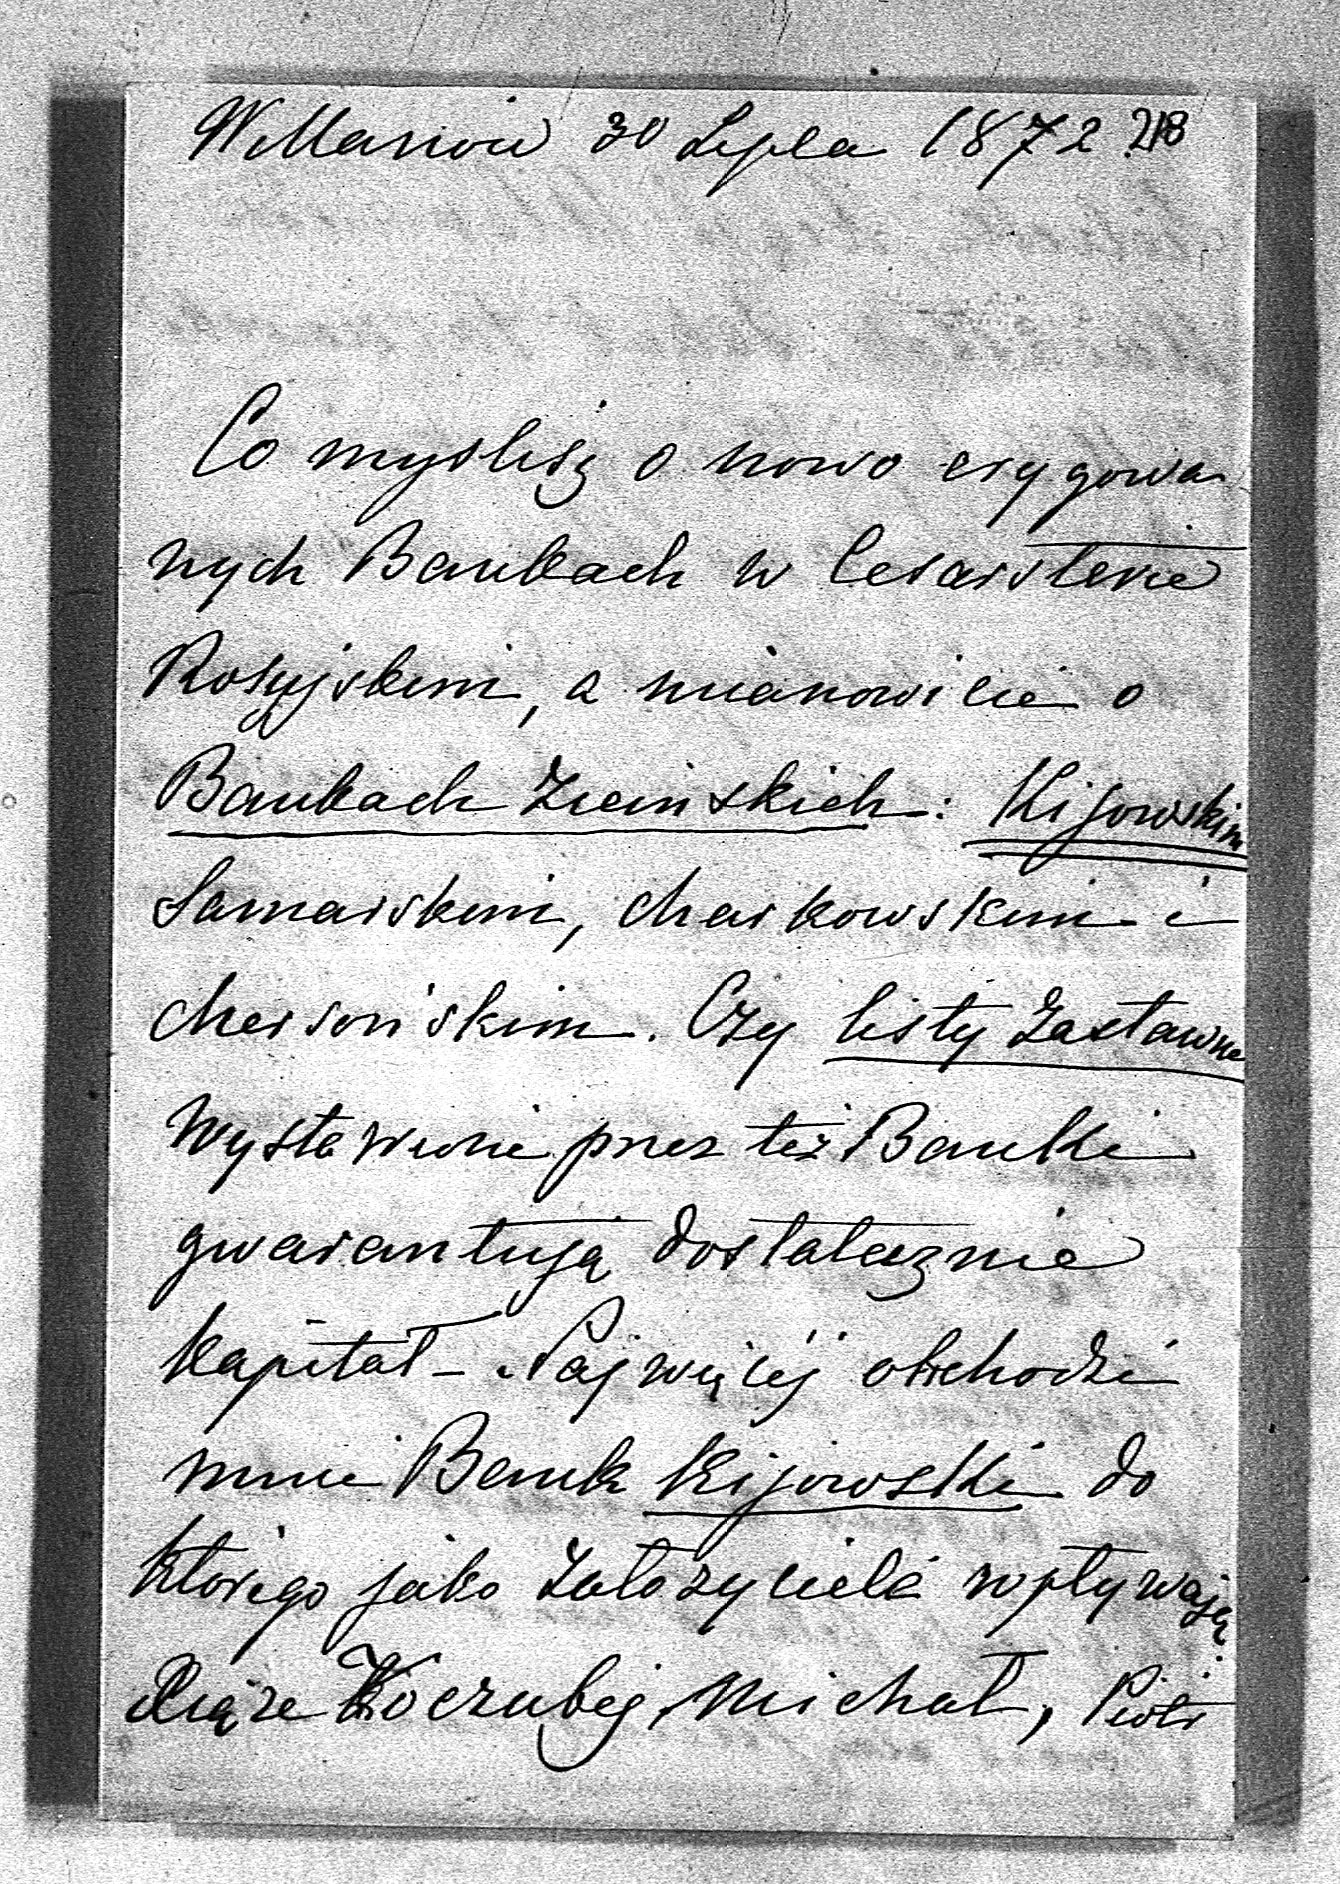 Willanów 30 Lipca 1872 218
Co myślisz o nowo erygowa
nych Bankach w Cesarstwie
Rosyjskim, a mianowicie o
Bankach Ziemskich: Kijowskim
Samarskim, charkowskim i
chersońskim. Czy listy Zastawne
wystawione przez też Banki
gwarantują dostatecznie
kapitał - Najwięcéj obchodzi
mnie Bank Kijowski do
którego jako Założyciele wpływają
Xiąże Koczubej, Michał, Piotr